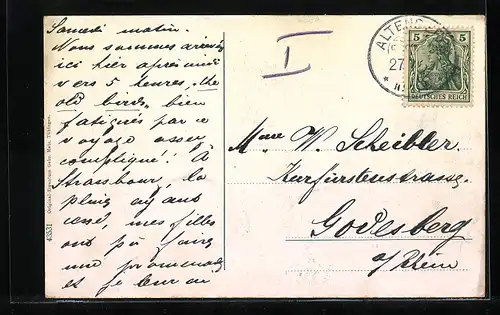 Samedi matin.
Nous sommes arrivés
ici hier après midi
vers 5 heures, the
old birds, bien
fatigués par ce
voyage assez
compliqué! À
Strassbour, la
pluie ayant
cessé, mes filles
ont pu faire
une promenade
et je leur ai
43531
ALTENS
27.
5 5
DEUTSCHES REICH
I
Mme W. Scheibler
Kurfürstenstrasse
Godesberg
a/Rhein